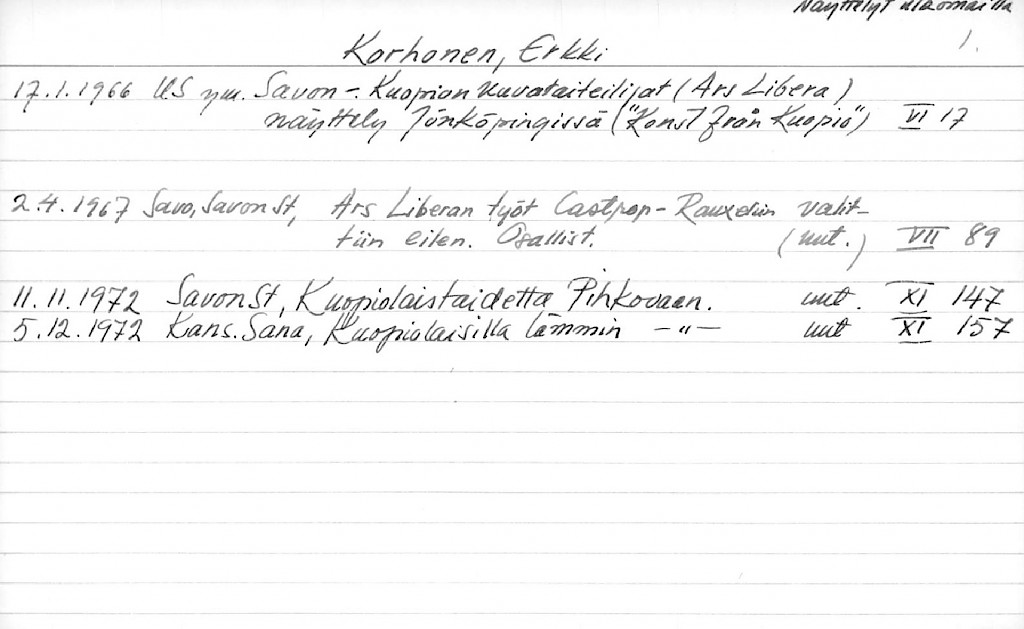 Näyttelyt ulkomailla
1.
Korhonen, Erkki
17.1.1966 US ym. Savon-Kuopion Kuvataiteilijat (Ars Libera)
näyttely Jönköpingissä ("Konst från Kuopio") VI 17
2.4.1967 Savo, Savon St, Ars Liberan työt Castrop-Rauxeliin valit-
tiin eilen. Osallist. (uut.) VII 89
11.11.1972 Savon St, Kuopiolaistaidetta Pihkovaan. uut. XI 147
5.12.1972 Kans. Sana, Kuopiolaisilla lämmin -"- uut XI 157